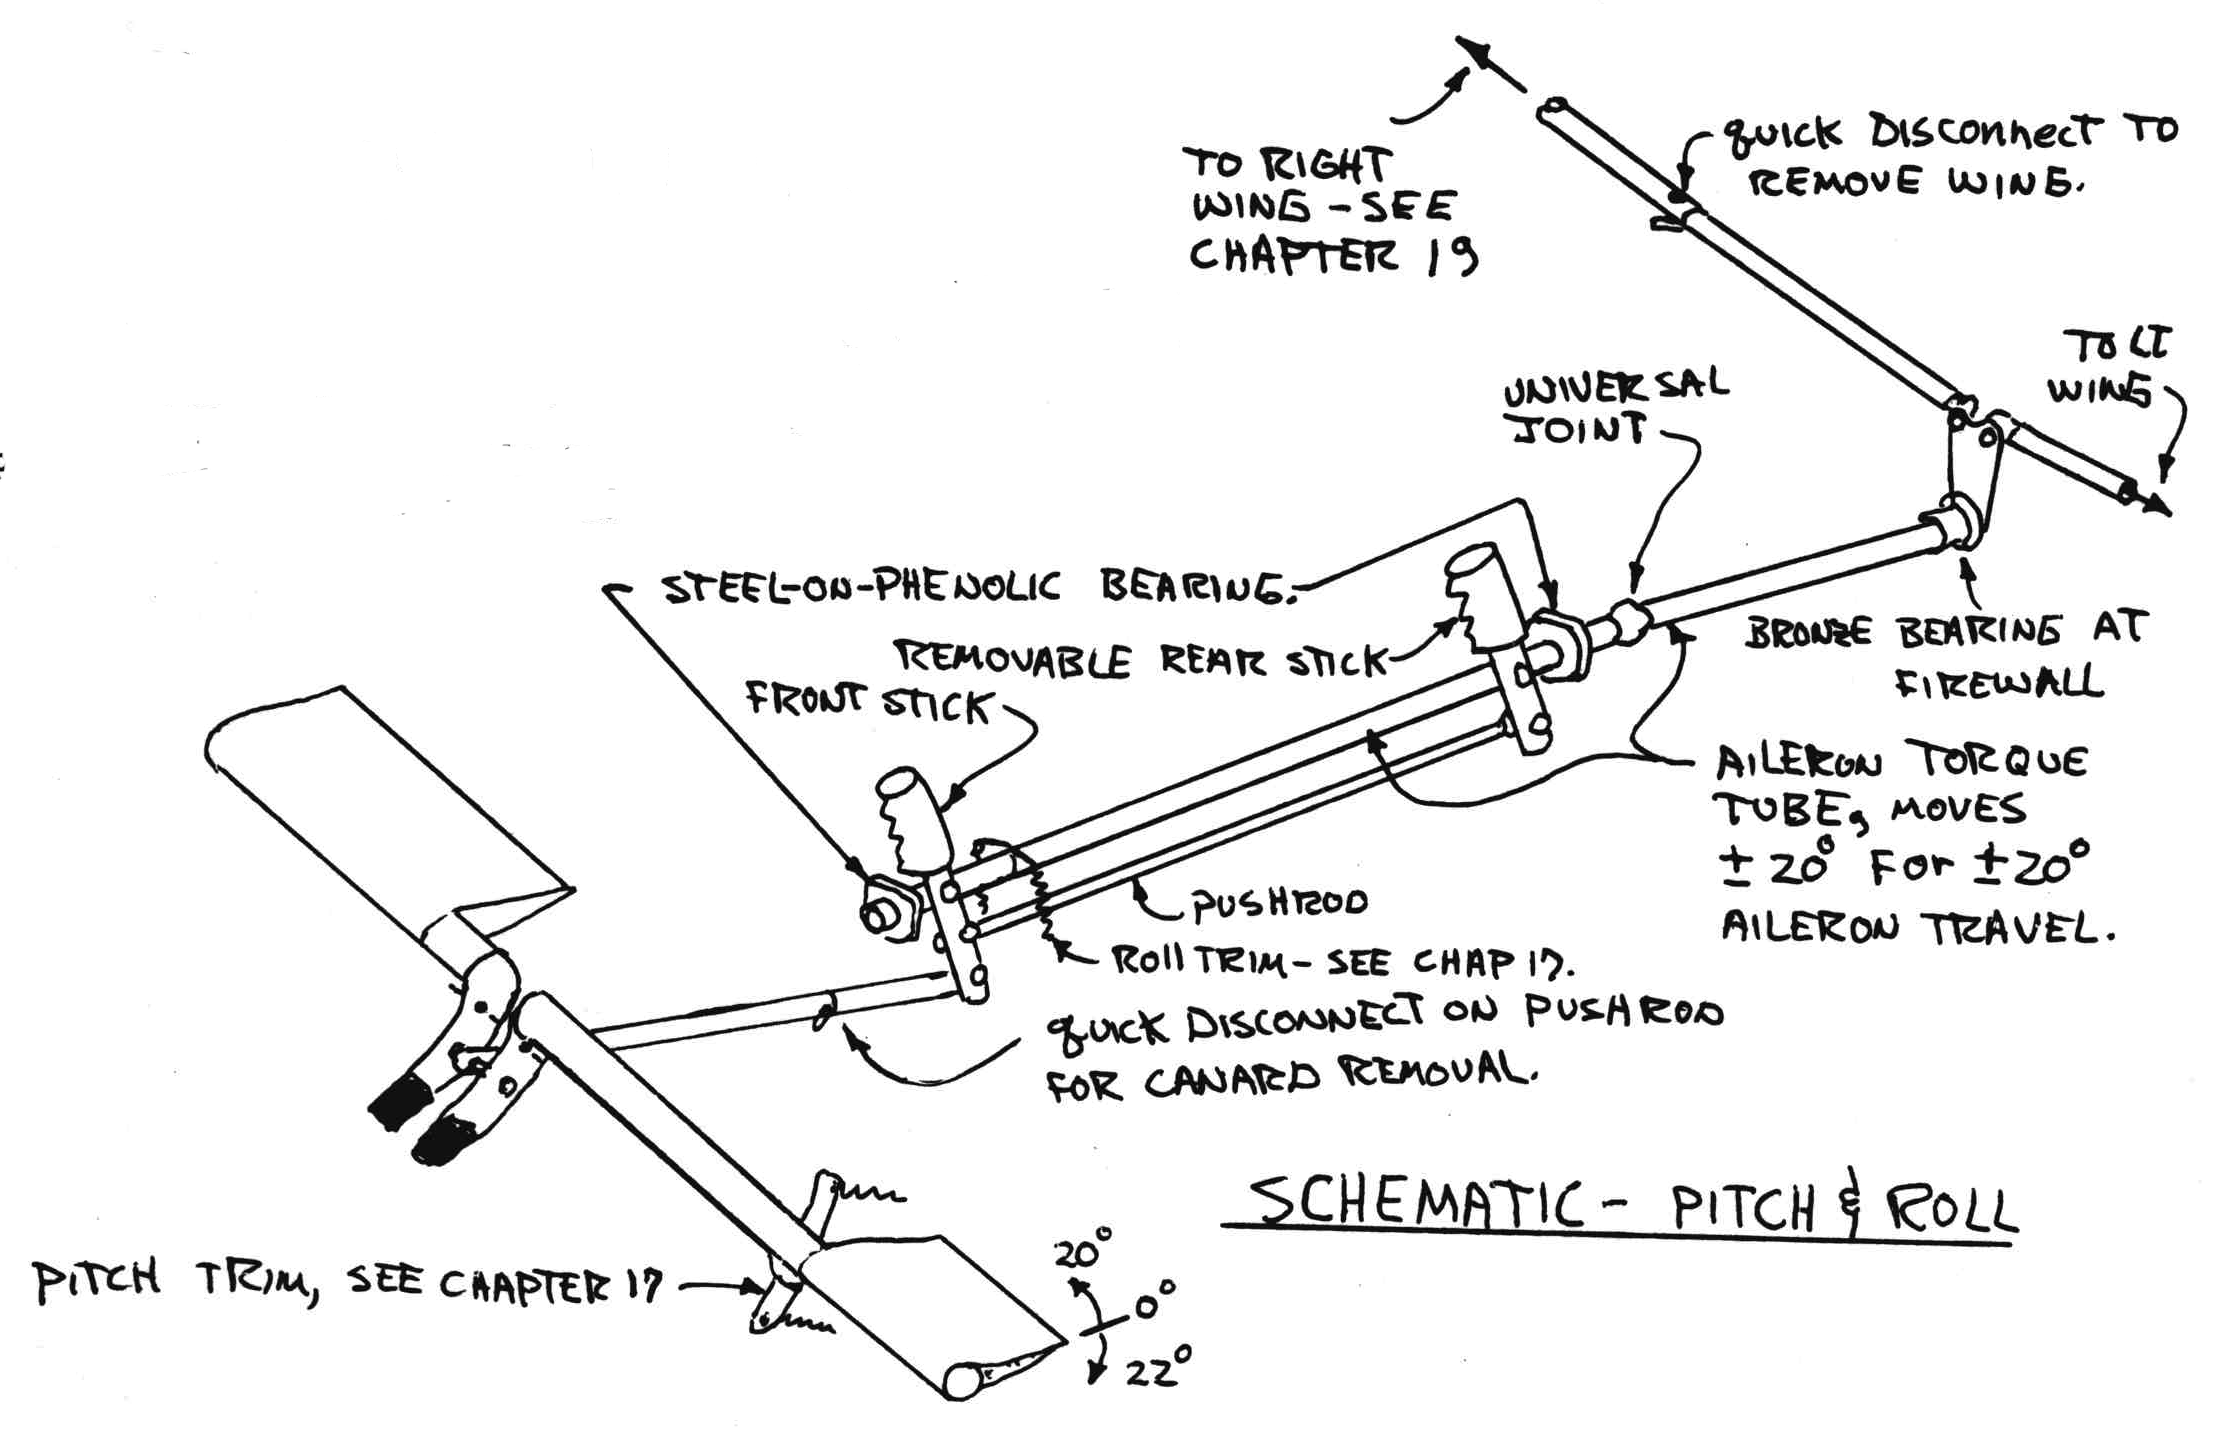 TO RIGHT
WING - SEE
CHAPTER 19
QUICK DISCONNECT TO
REMOVE WING.
TO LT
WING
UNIVERSAL
JOINT
STEEL-ON-PHENOLIC BEARING.
REMOVABLE REAR STICK
FRONT STICK
BRONZE BEARING AT
FIREWALL
AILERON TORQUE
TUBE, MOVES
± 20° FOR ± 20°
AILERON TRAVEL.
PUSHROD
ROLL TRIM - SEE CHAP 17.
QUICK DISCONNECT ON PUSHROD
FOR CANARD REMOVAL.
SCHEMATIC - PITCH & ROLL
PITCH TRIM, SEE CHAPTER 17
20°
0°
22°